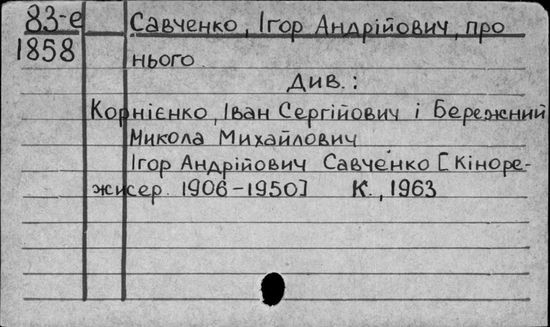 83-е Савченко, Ігор Андрійович, про
1858 нього.
Див.:
Корнієнко, Іван Сергійович і Бережний
Микола Михайлович
Ігор Андрійович Савченко [Кіноре-
жисер. 1906-1950] К., 1963